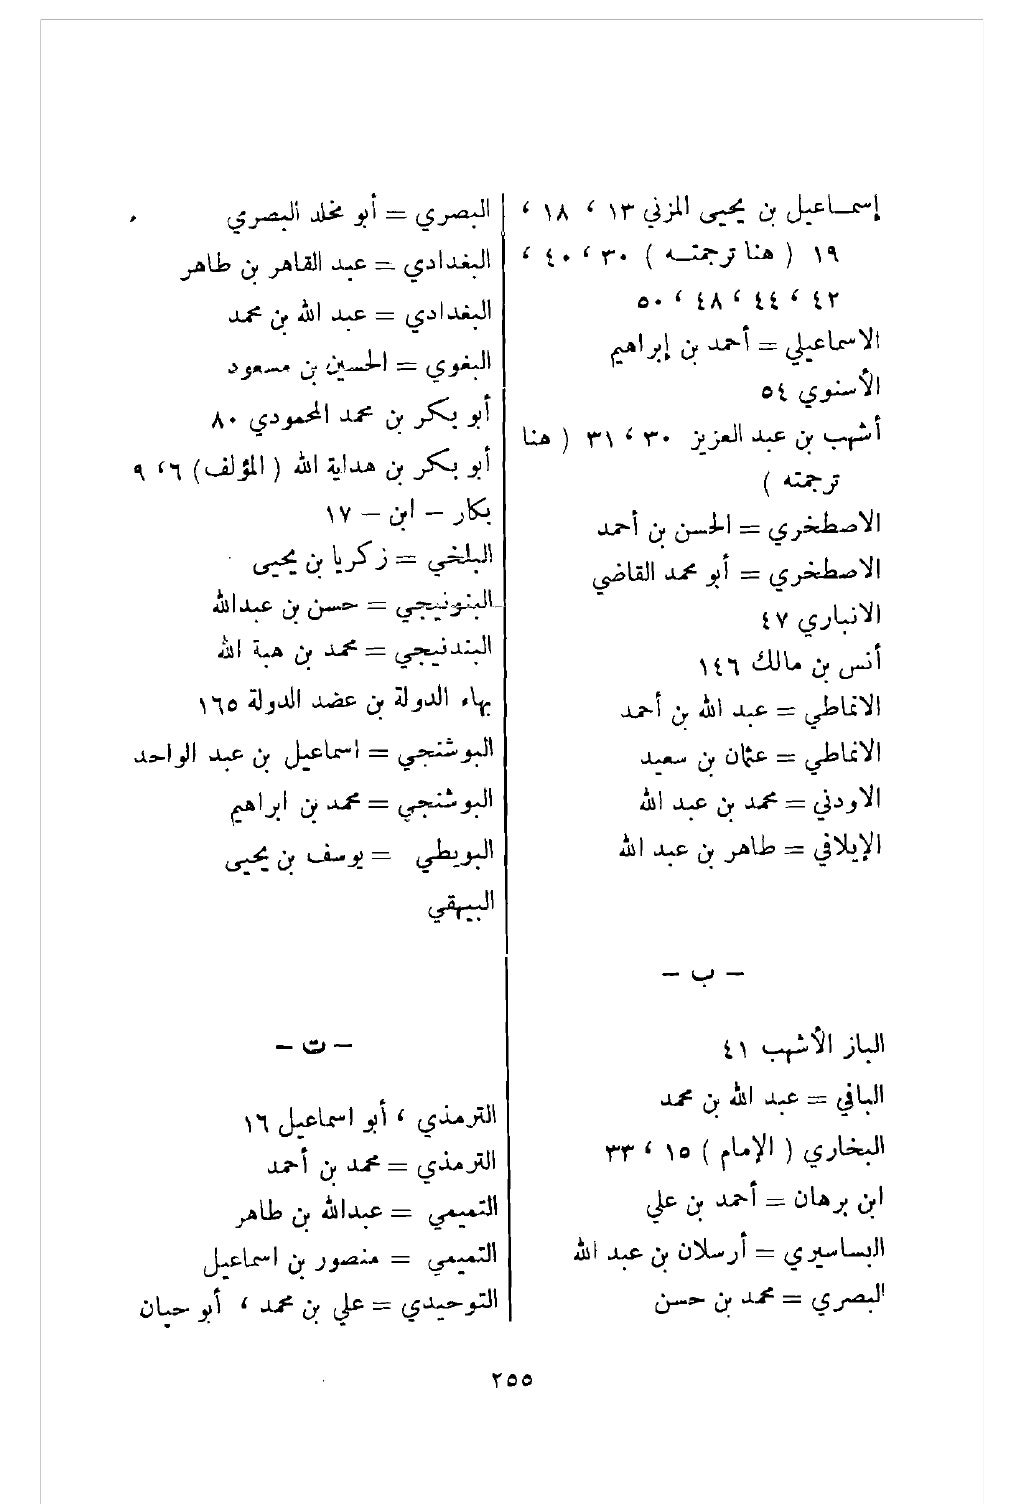 إسماعيل بن يحيى المزني ١٣ ، ١٨ ،
١٩ ( هنا ترجمته ) ٣٠ ، ٤٠ ،
٤٢ ، ٤٤ ، ٤٨ ، ٥٠
الاسماعيلي = أحمد بن إبراهيم
الأسنوي ٥٤
أشهب بن عبد العزيز ٣٠ ، ٣١ ( هنا
ترجمته )
الاصطخري = الحسن بن أحمد
الاصطخري = أبو محمد القاضي
الانباري ٤٧
أنس بن مالك ١٤٦
الانماطي = عبد الله بن أحمد
الانماطي = عثمان بن سعيد
الاودني = محمد بن عبد الله
الإيلافي = طاهر بن عبد الله
– ب –
الباز الأشهب ٤١
البافي = عبد الله بن محمد
البخاري ( الإمام ) ١٥ ، ٣٣
ابن برهان = أحمد بن علي
البساسيري = أرسلان بن عبد الله
البصري = محمد بن حسن
البصري = أبو مخلد البصري
البغدادي = عبد القاهر بن طاهر
البغدادي = عبد الله بن محمد
البغوي = الحسين بن مسعود
أبو بكر بن محمد المحمودي ٨٠
أبو بكر بن هداية الله ( المؤلف ) ٦ ، ٩
بكار – ابن – ١٧
البلخي = زكريا بن يحيى
البنونيجي = حسن بن عبدالله
البندنيجي = محمد بن هبة الله
بهاء الدولة بن عضد الدولة ١٦٥
البوشنجي = اسماعيل بن عبد الواحد
البوشنجي = محمد بن ابراهيم
البويطي = يوسف بن يحيى
البيهقي
– ت –
الترمذي ، أبو اسماعيل ١٦
الترمذي = محمد بن أحمد
التميمي = عبدالله بن طاهر
التميمي = منصور بن اسماعيل
التوحيدي = علي بن محمد ، أبو حيان
٢٥٥